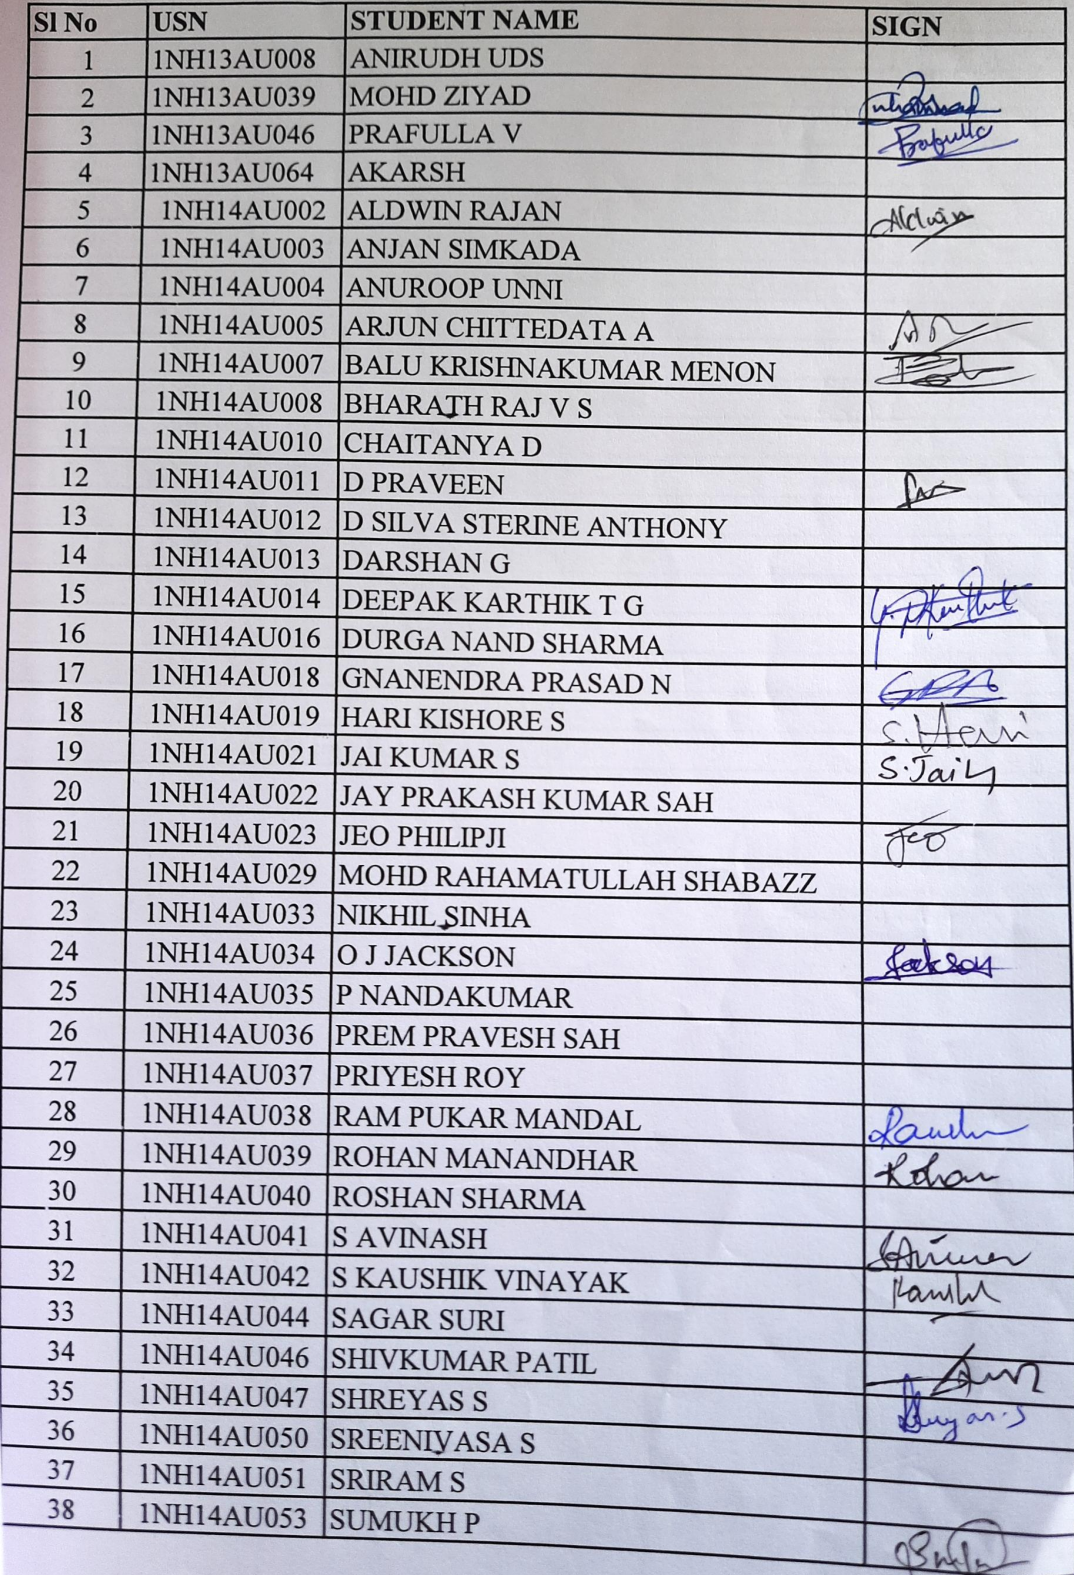 Sl No USN STUDENT NAME SIGN
1 1NH13AU008 ANIRUDH UDS
2 1NH13AU039 MOHD ZIYAD
3 1NH13AU046 PRAFULLA V
4 1NH13AU064 AKARSH
5 1NH14AU002 ALDWIN RAJAN Aldwin
6 1NH14AU003 ANJAN SIMKADA
7 1NH14AU004 ANUROOP UNNI
8 1NH14AU005 ARJUN CHITTEDATA A
9 1NH14AU007 BALU KRISHNAKUMAR MENON
10 1NH14AU008 BHARATH RAJ V S
11 1NH14AU010 CHAITANYA D
12 1NH14AU011 D PRAVEEN
13 1NH14AU012 D SILVA STERINE ANTHONY
14 1NH14AU013 DARSHAN G
15 1NH14AU014 DEEPAK KARTHIK T G
16 1NH14AU016 DURGA NAND SHARMA
17 1NH14AU018 GNANENDRA PRASAD N
18 1NH14AU019 HARI KISHORE S
19 1NH14AU021 JAI KUMAR S
20 1NH14AU022 JAY PRAKASH KUMAR SAH
21 1NH14AU023 JEO PHILIPJI Jeo
22 1NH14AU029 MOHD RAHAMATULLAH SHABAZZ
23 1NH14AU033 NIKHIL SINHA
24 1NH14AU034 O J JACKSON Jackson
25 1NH14AU035 P NANDAKUMAR
26 1NH14AU036 PREM PRAVESH SAH
27 1NH14AU037 PRIYESH ROY
28 1NH14AU038 RAM PUKAR MANDAL
29 1NH14AU039 ROHAN MANANDHAR Rohan
30 1NH14AU040 ROSHAN SHARMA
31 1NH14AU041 S AVINASH
32 1NH14AU042 S KAUSHIK VINAYAK
33 1NH14AU044 SAGAR SURI
34 1NH14AU046 SHIVKUMAR PATIL
35 1NH14AU047 SHREYAS S
36 1NH14AU050 SREENIVASA S
37 1NH14AU051 SRIRAM S
38 1NH14AU053 SUMUKH P